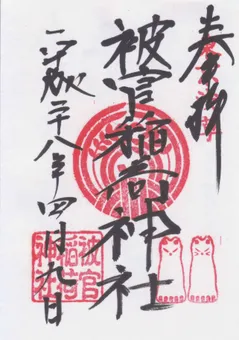 奉拝
被官稲荷神社
平成二十八年四月九日
被官
稲荷
神社